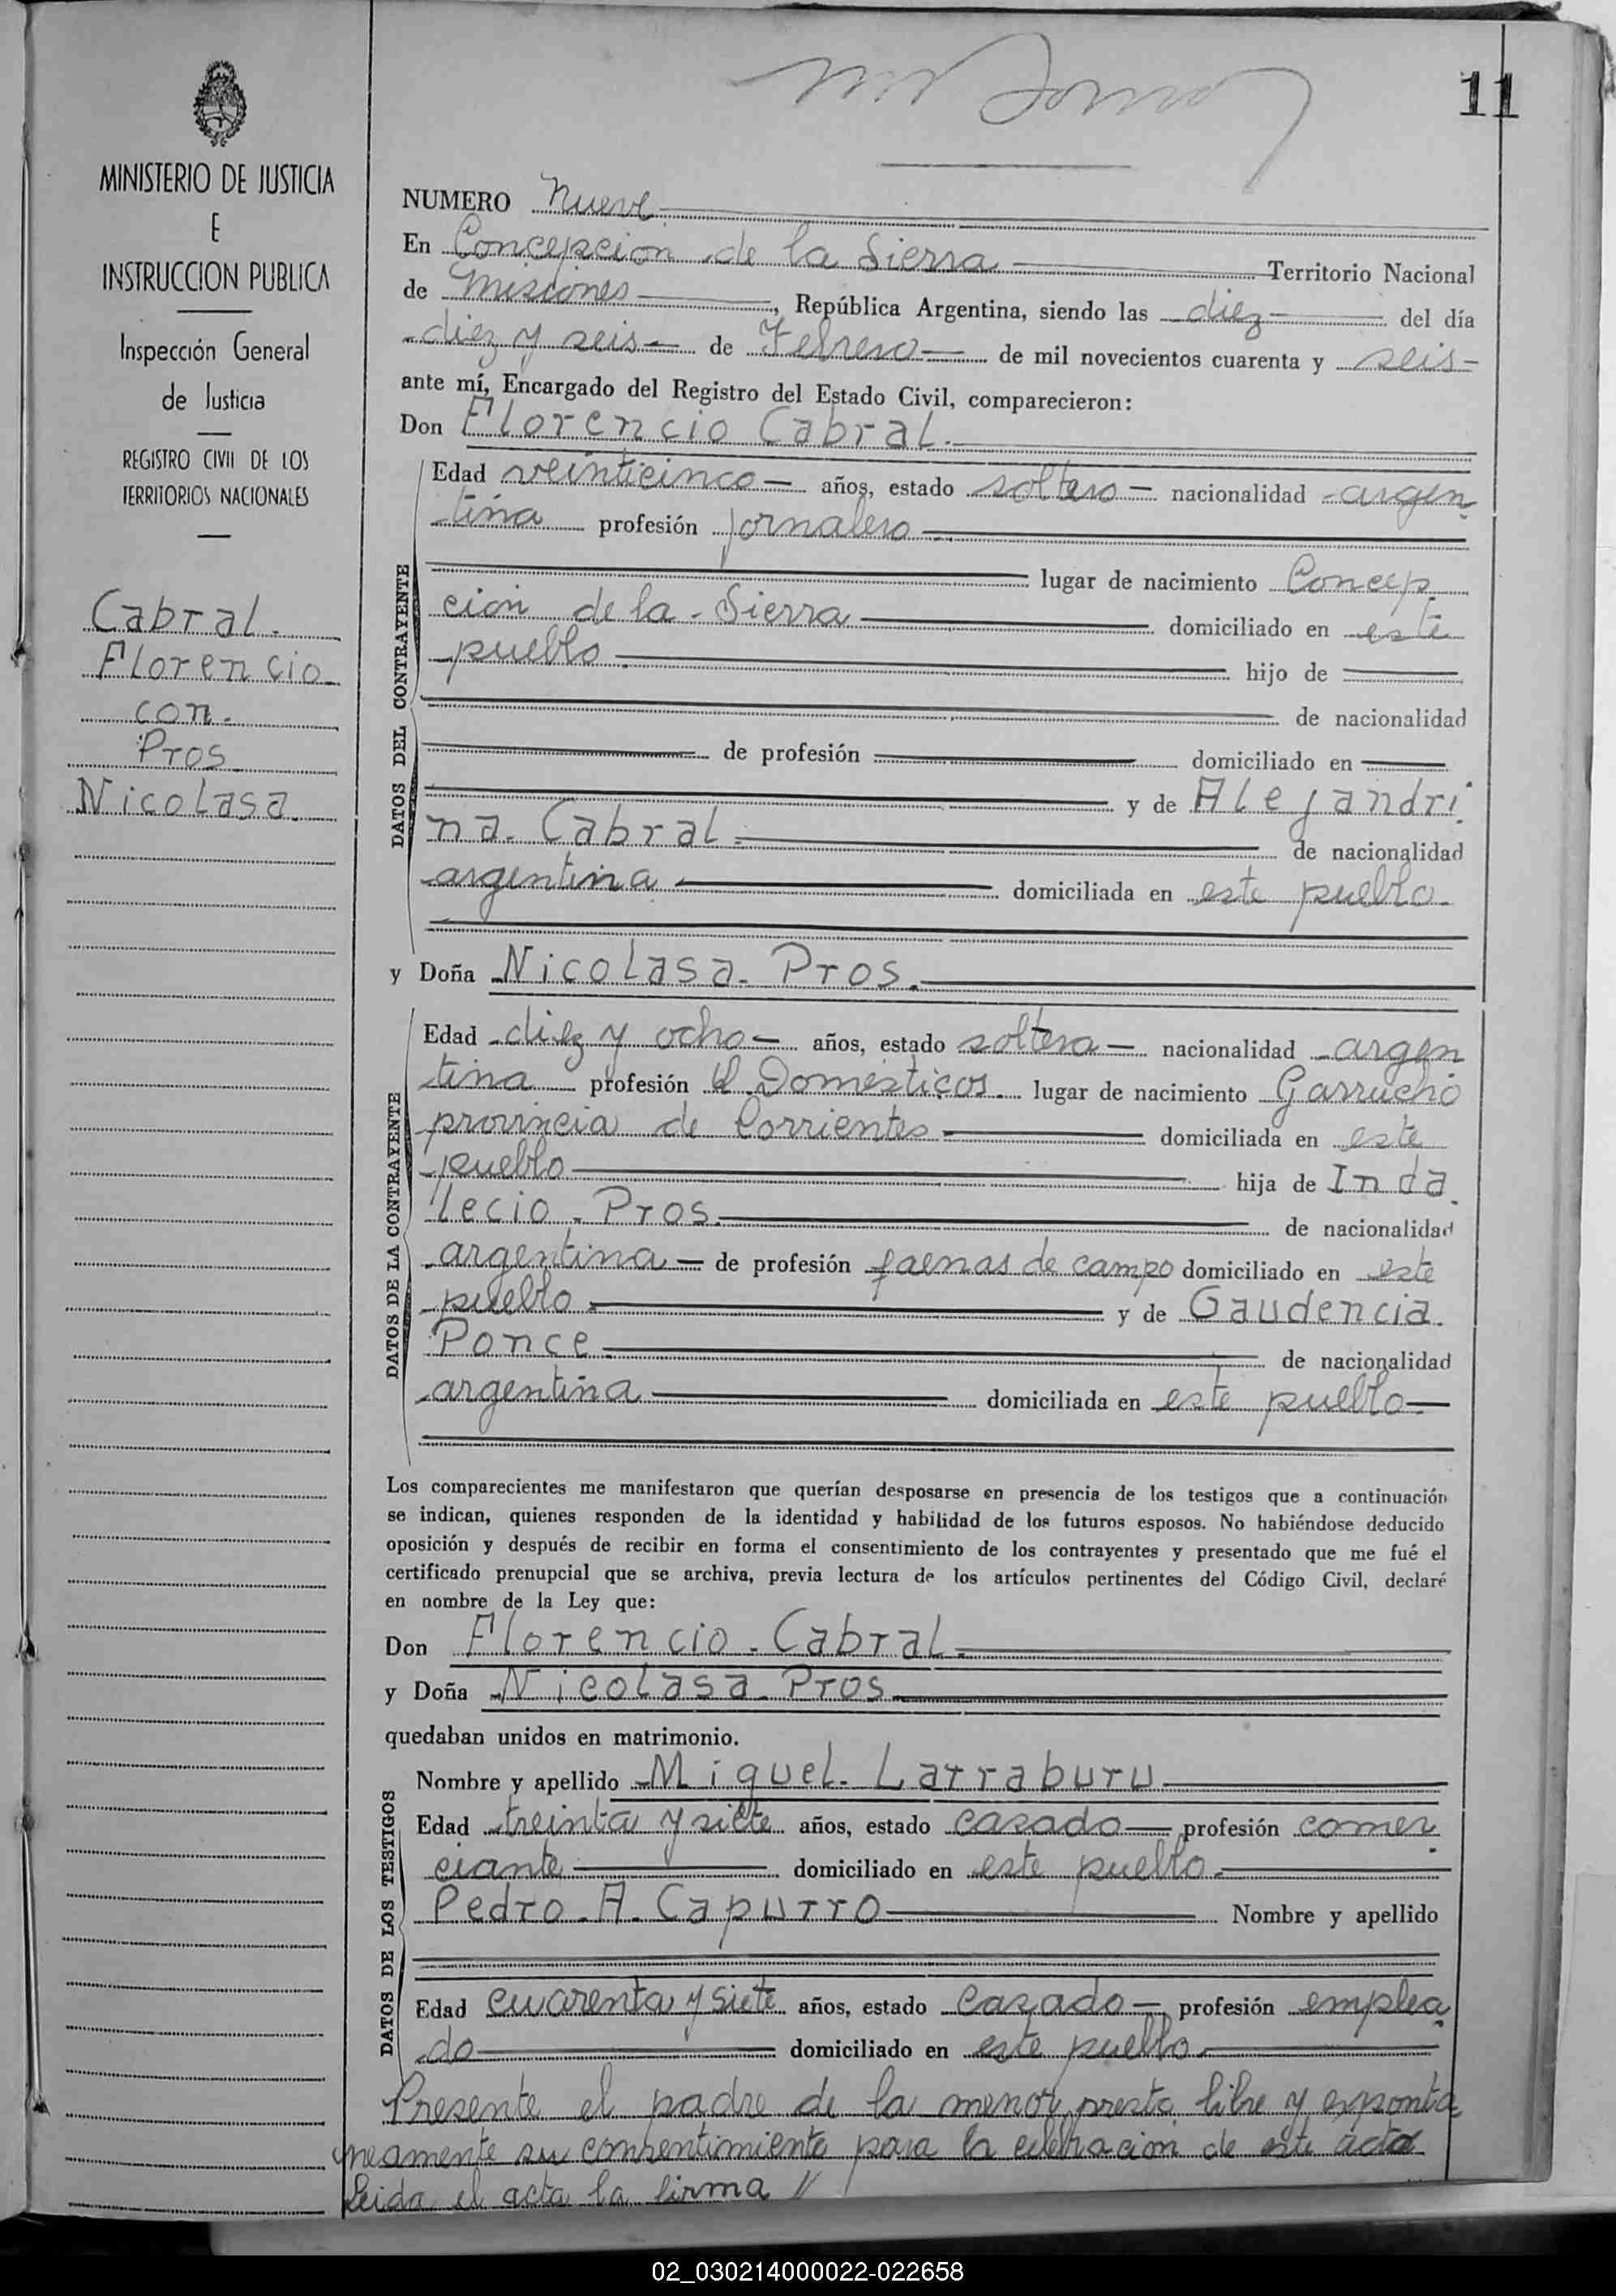 11
MINISTERIO DE JUSTICIA
E
INSTRUCCION PUBLICA
Inspección General
de Justicia
REGISTRO CIVIL DE LOS
TERRITORIOS NACIONALES
Cabral.
Florencio
con.
Pros
Nicolasa.
NUMERO Nueve
En Concepcion de la Sierra Territorio Nacional
de Misiones, República Argentina, siendo las diez del día
diez y seis de Febrero de mil novecientos cuarenta y seis
ante mí, Encargado del Registro del Estado Civil, comparecieron:
Don Florencio Cabral.
DATOS DEL CONTRAYENTE
Edad veinticinco años, estado soltero nacionalidad argen
tina profesión jornalero
lugar de nacimiento Concep
cion de la Sierra domiciliado en este
pueblo hijo de
de nacionalidad
de profesión domiciliado en
y de Alejandri
na. Cabral. de nacionalidad
argentina domiciliada en este pueblo
y Doña Nicolasa. Pros.
DATOS DE LA CONTRAYENTE
Edad diez y ocho años, estado soltera nacionalidad argen
tina profesión Q. Domesticos. lugar de nacimiento Garruchó
provincia de Corrientes domiciliada en este
pueblo hija de Inda
lecio. Pros. de nacionalidad
argentina de profesión faenas de campo domiciliado en este
pueblo y de Gaudencia.
Ponce de nacionalidad
argentina domiciliada en este pueblo
Los comparecientes me manifestaron que querían desposarse en presencia de los testigos que a continuación
se indican, quienes responden de la identidad y habilidad de los futuros esposos. No habiéndose deducido
oposición y después de recibir en forma el consentimiento de los contrayentes y presentado que me fué el
certificado prenupcial que se archiva, previa lectura de los artículos pertinentes del Código Civil, declaré
en nombre de la Ley que:
Don Florencio. Cabral.
y Doña Nicolasa. Pros
quedaban unidos en matrimonio.
DATOS DE LOS TESTIGOS
Nombre y apellido Miguel. Larraburu
Edad treinta y siete años, estado casado profesión comer
ciante domiciliado en este pueblo.
Pedro. A. Capurro Nombre y apellido
Edad cuarenta y siete años, estado casado profesión emplea
do domiciliado en este pueblo
Presente el padre de la menor presta libre y esponta
neamente su consentimiento para la celebracion de este acta
Leida el acta la firma //
02_030214000022-022658